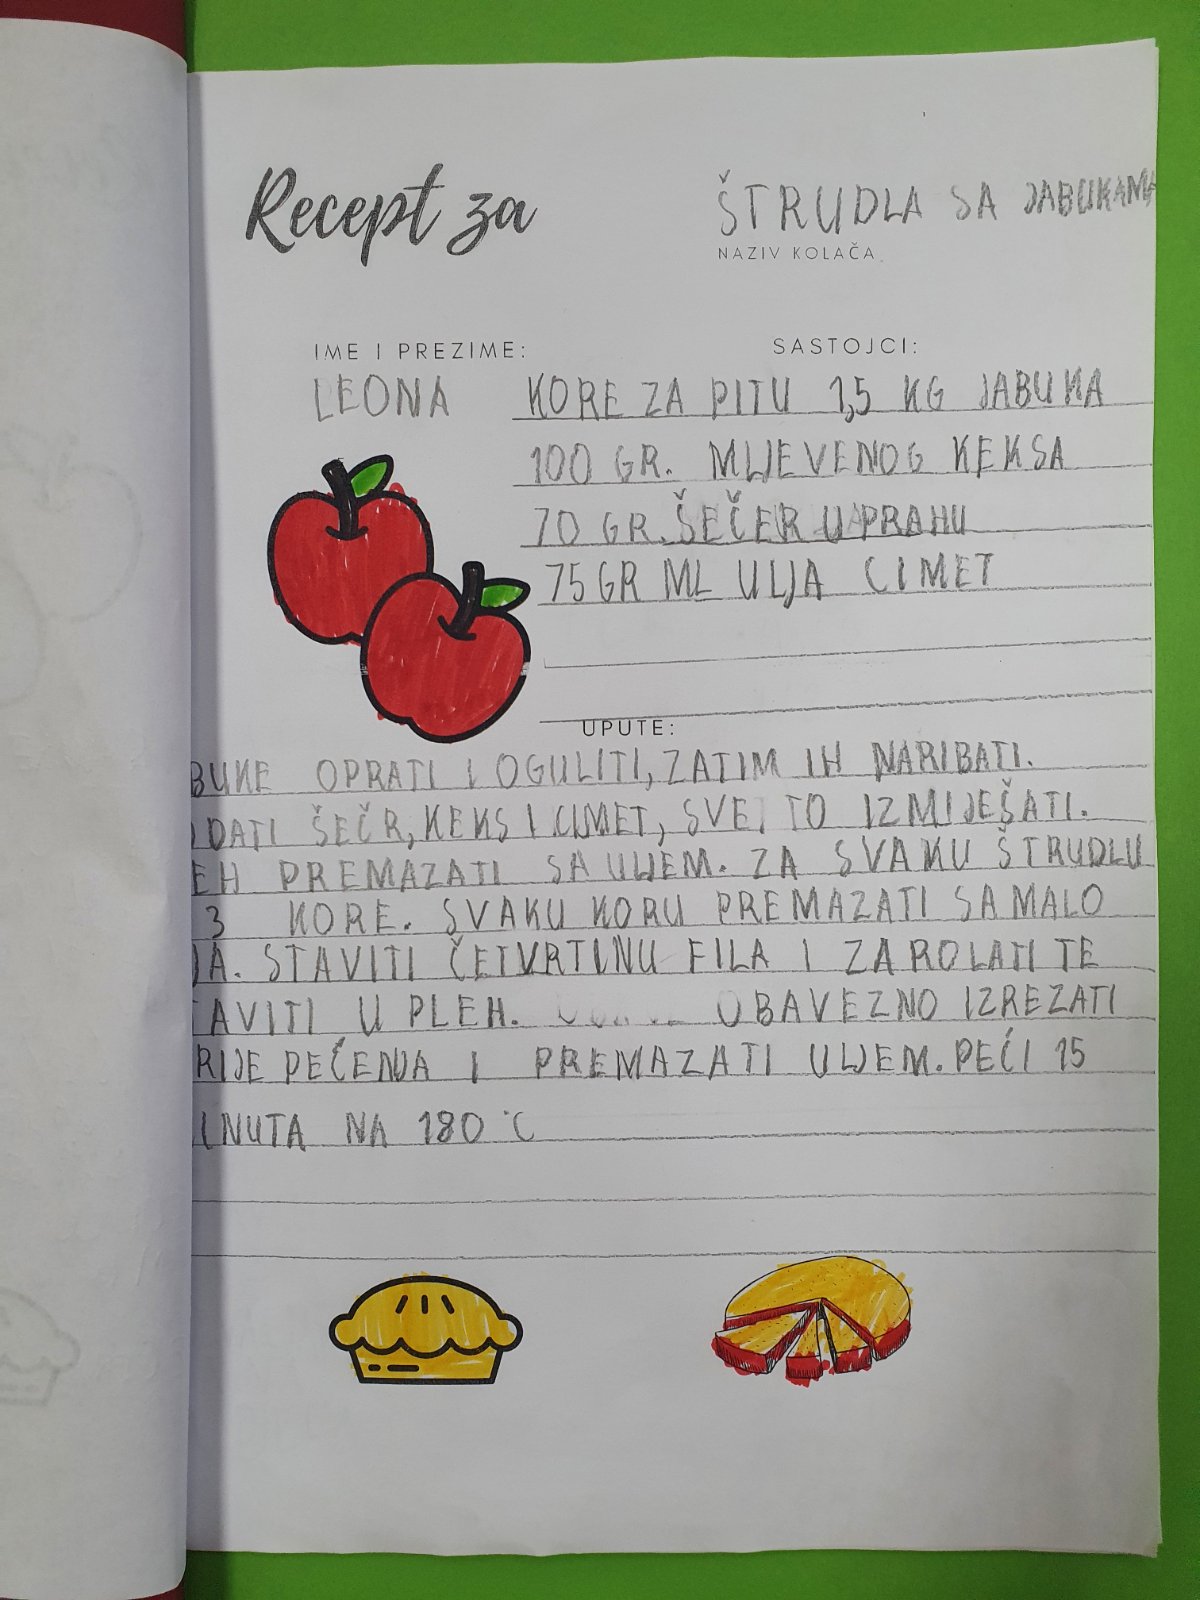 Recept za
ŠTRUDLA SA JABUKAMA
NAZIV KOLAČA
IME I PREZIME:
LEONA
SASTOJCI:
KORE ZA PITU 1,5 KG JABUKA
100 GR. MLJEVENOG KEKSA
70 GR. ŠEČER U PRAHU
75 GR ML ULJA CIMET
UPUTE:
BUKE OPRATI I OGULITI, ZATIM IH NARIBATI.
DATI ŠEČR, KEKS I CIMET, SVE TO IZMIJEŠATI.
EH PREMAZATI SA ULJEM. ZA SVAKU ŠTRUDLU
3 KORE. SVAKU KORU PREMAZATI SA MALO
JA. STAVITI ČETVRTINU FILA I ZAROLATI TE
TAVITI U PLEH. OBAVEZNO IZREZATI
RIJE PEĆENJA I PREMAZATI ULJEM. PEĆI 15
INUTA NA 180 °C